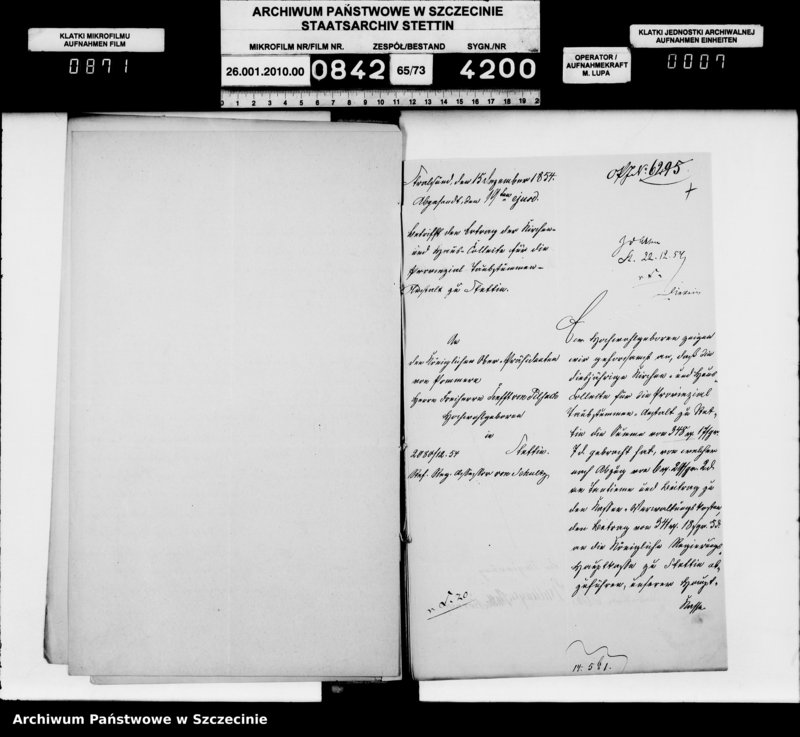 ARCHIWUM PAŃSTWOWE W SZCZECINIE
STAATSARCHIV STETTIN
KLATKI MIKROFILMU
AUFNAHMEN FILM
0871
MIKROFILM NR/FILM NR.
ZESPÓŁ/BESTAND
SYGN./NR
26.001.2010.00
0842
65/73
4200
OPERATOR /
AUFNAHMEKRAFT
M. LUPA
KLATKI JEDNOSTKI ARCHIWALNEJ
AUFNAHMEN EINHEITEN
0007
0 1 2 3 4 5 6 7 8 9 10 11 12 13 14 15 16 17 18 19 2
Stralsund, den 15 Dezember 1854.
Abgesandt, den 19ten ejusd.
Betrifft den Ertrag der Kirchen-
und Haus-Collecte für die
Provinzial Taubstummen-
Anstalt zu Stettin.
An
den Königlichen Ober-Präsidenten
von Pommern
Herrn Freiherrn Senfft von Pilsach
Hochwohlgeboren
in
Stettin.
2080/12. 54
Ref. Reg. Assessor von Schultz
OPJN: 6295
St. 22.12.54
Ew. Hochwohlgeboren zeigen
wir gehorsamst an, daß die
diesjährige Kirchen- und Haus-
Collecte für die Provinzial
Taubstummen-Anstalt zu Stet-
tin die Summe von 348 rg. 17 sgr.
7 d. gebracht hat, von welcher
nach Abzug von 6 rg. 29 sgr. 2 d.
an Tantieme und Beitrag zu
den Kassen-Verwaltungskosten,
der Betrag von 341 rg. 18 sgr. 5 d.
an die Königliche Regierungs-
Hauptkasse zu Stettin ab-
zuführen, unserer Haupt-
Kasse
14. 561.
Archiwum Państwowe w Szczecinie